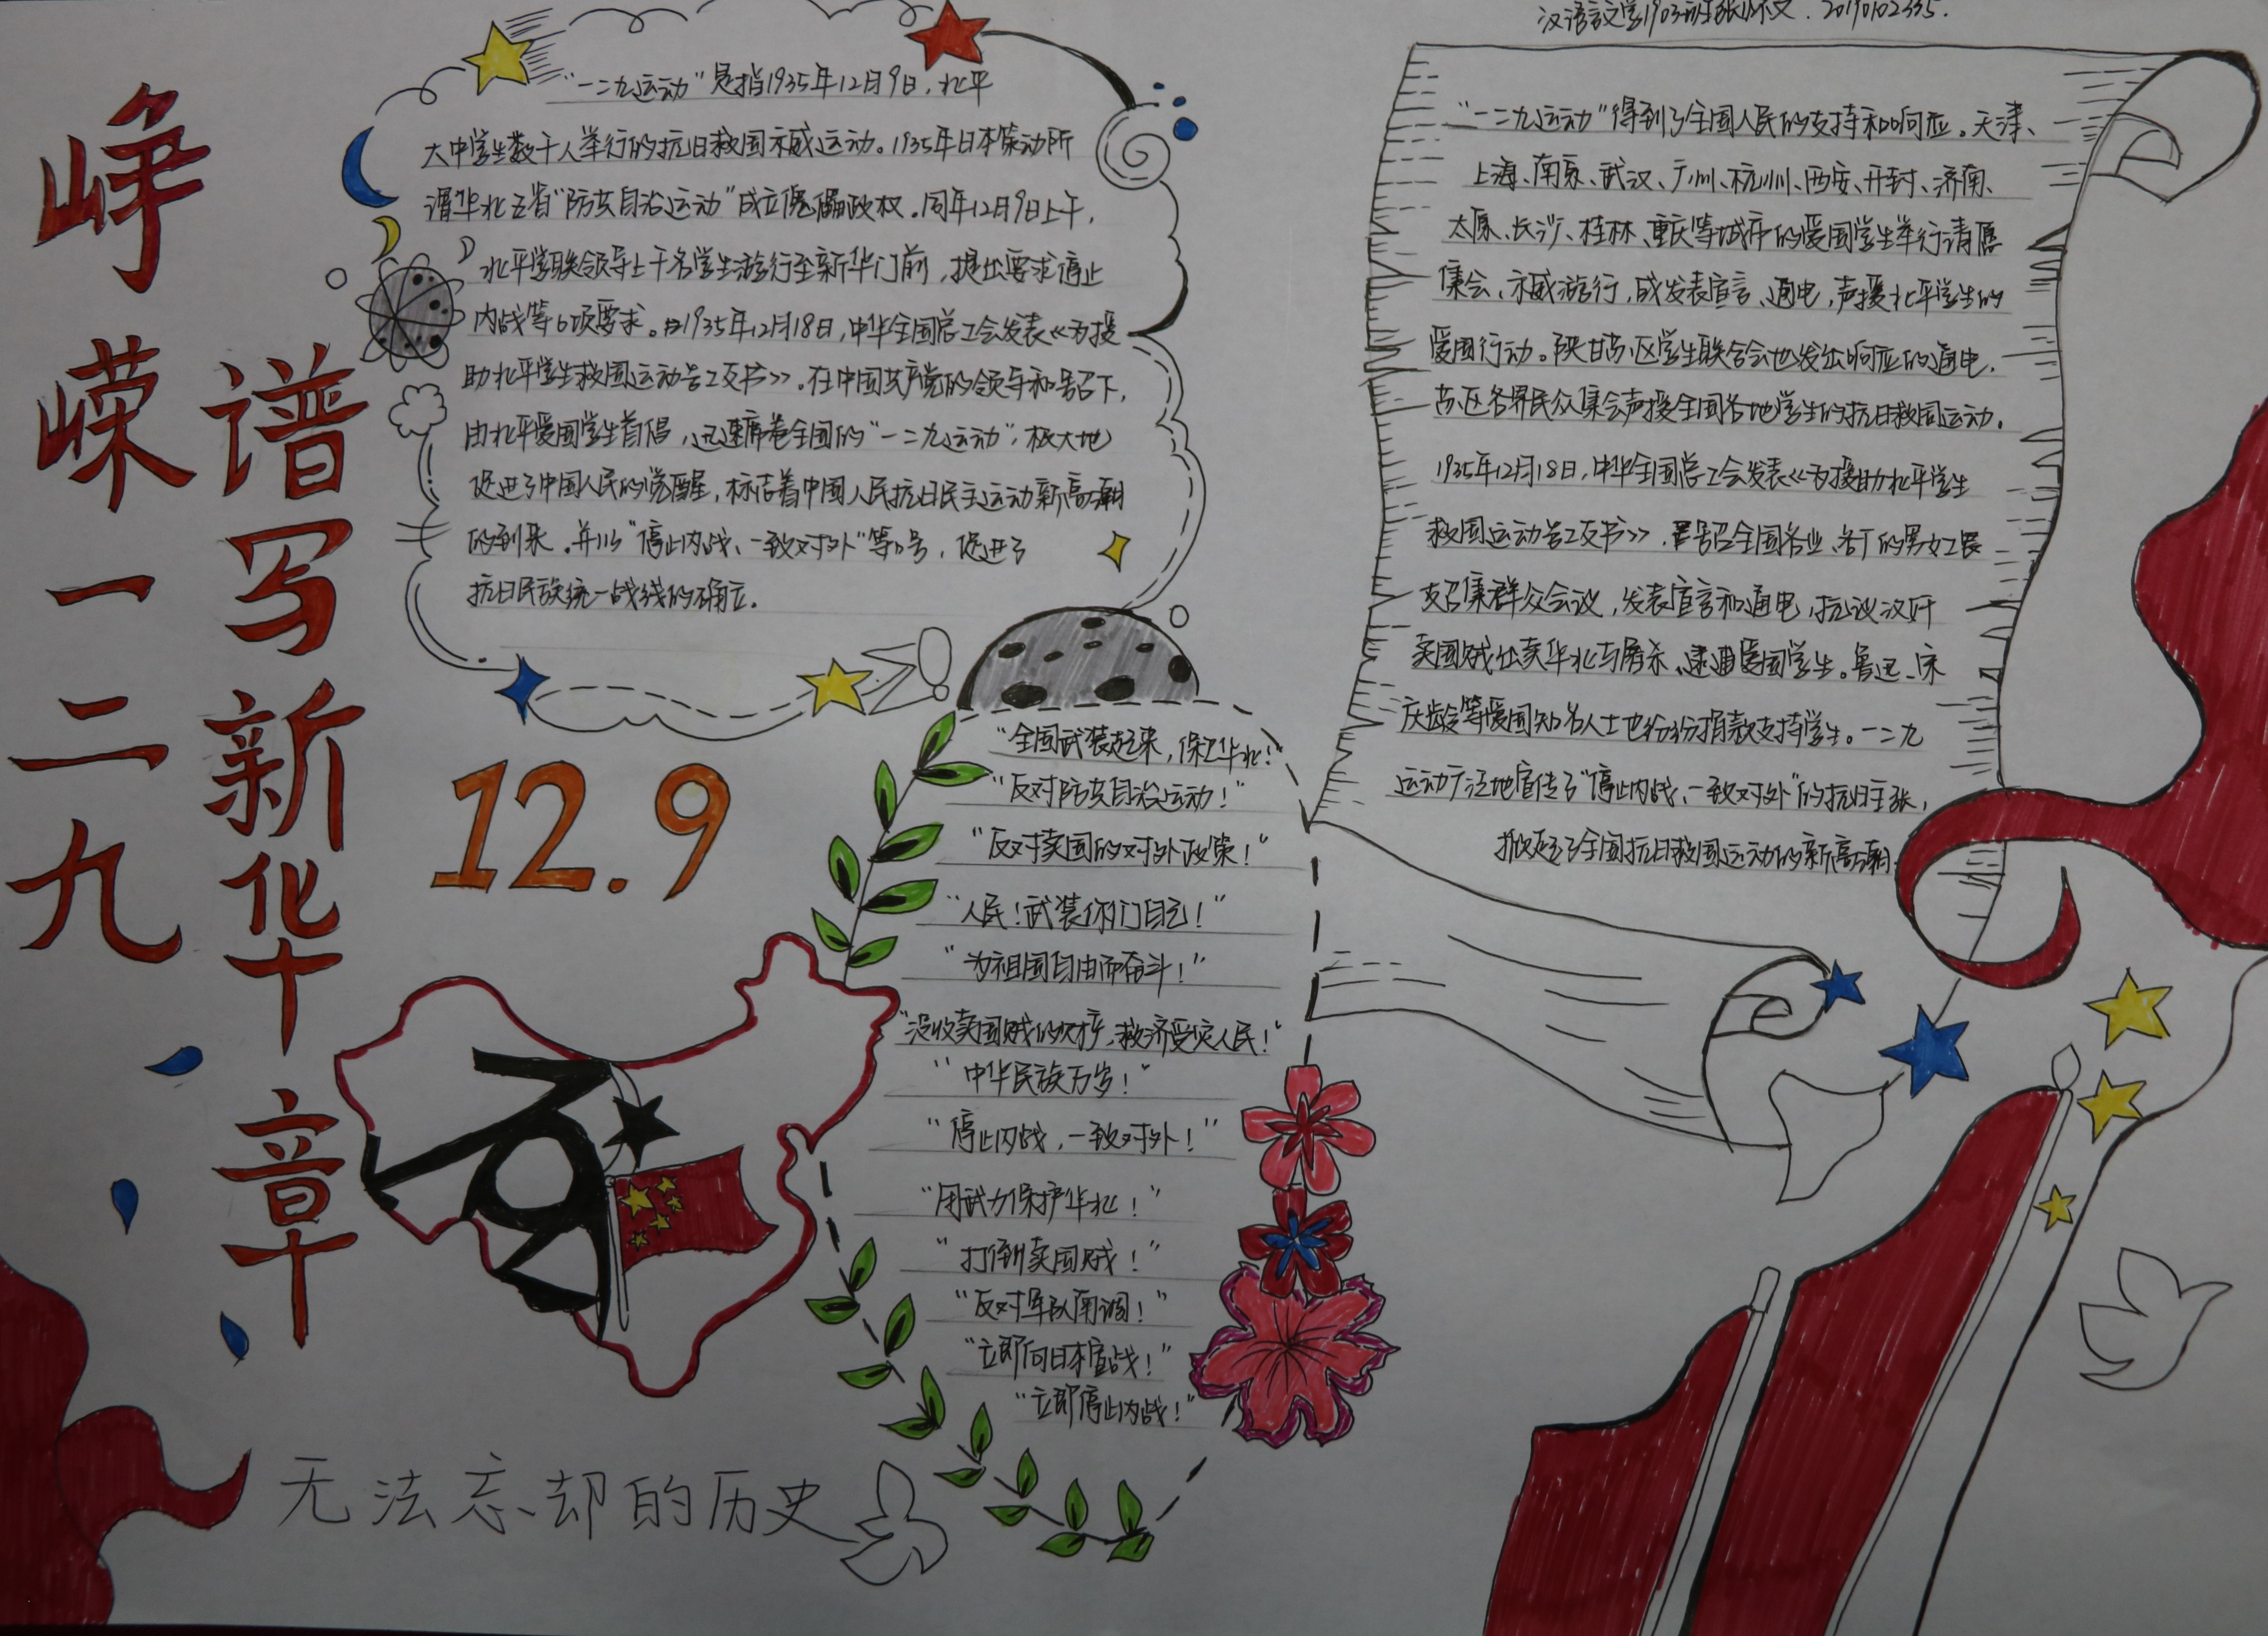 峥嵘一二九
谱写新华章
"一二九运动"是指1935年12月9日，北平
大中学生数千人举行的抗日救国示威运动。1935年日本策动所
谓华北五省"防共自治运动"成立傀儡政权。同年12月9日上午，
北平学联领导上千名学生游行至新华门前，提出要求停止
内战等6项要求。1935年12月18日，中华全国总工会发表《为援
助北平学生救国运动告工友书》。在中国共产党的领导和号召下，
由北平爱国学生首倡，迅速席卷全国的"一二九运动"，极大地
促进了中国人民的觉醒，标志着中国人民抗日民主运动新高潮
的到来。并以"停止内战、一致对外"等口号，促进了
抗日民族统一战线的确立。
12.9
"全国武装起来，保卫华北！"
"反对防共自治运动！"
"反对卖国的对外政策！"
"人民！武装你们自己！"
"为祖国自由而奋斗！"
"没收卖国贼的财产，救济受灾人民！"
"中华民族万岁！"
"停止内战，一致对外！"
"用武力保护华北！"
"打倒卖国贼！"
"反对军队南调！"
"立即向日本宣战！"
"立即停止内战！"
无法忘却的历史
汉语言文学1903班 20190102335.
"一二九运动"得到了全国人民的支持和响应。天津、
上海、南京、武汉、广州、杭州、西安、开封、济南、
太原、长沙、桂林、重庆等城市的爱国学生举行请愿
集会、示威游行，或发表宣言、通电，声援北平学生的
爱国行动。陕甘苏区学生联合会也发出响应的通电，
苏区各界民众集会声援全国各地学生的抗日救国运动。
1935年12月18日，中华全国总工会发表《为援助北平学生
救国运动告工友书》，号召全国各业、各厂的男女工友
召集群众会议，发表宣言和通电，抗议汉奸
卖国贼出卖华北与屠杀、逮捕爱国学生。鲁迅、宋
庆龄等爱国知名人士也纷纷捐款支持学生。一二九
运动广泛地宣传了"停止内战、一致对外"的抗日主张，
掀起了全国抗日救国运动的新高潮。